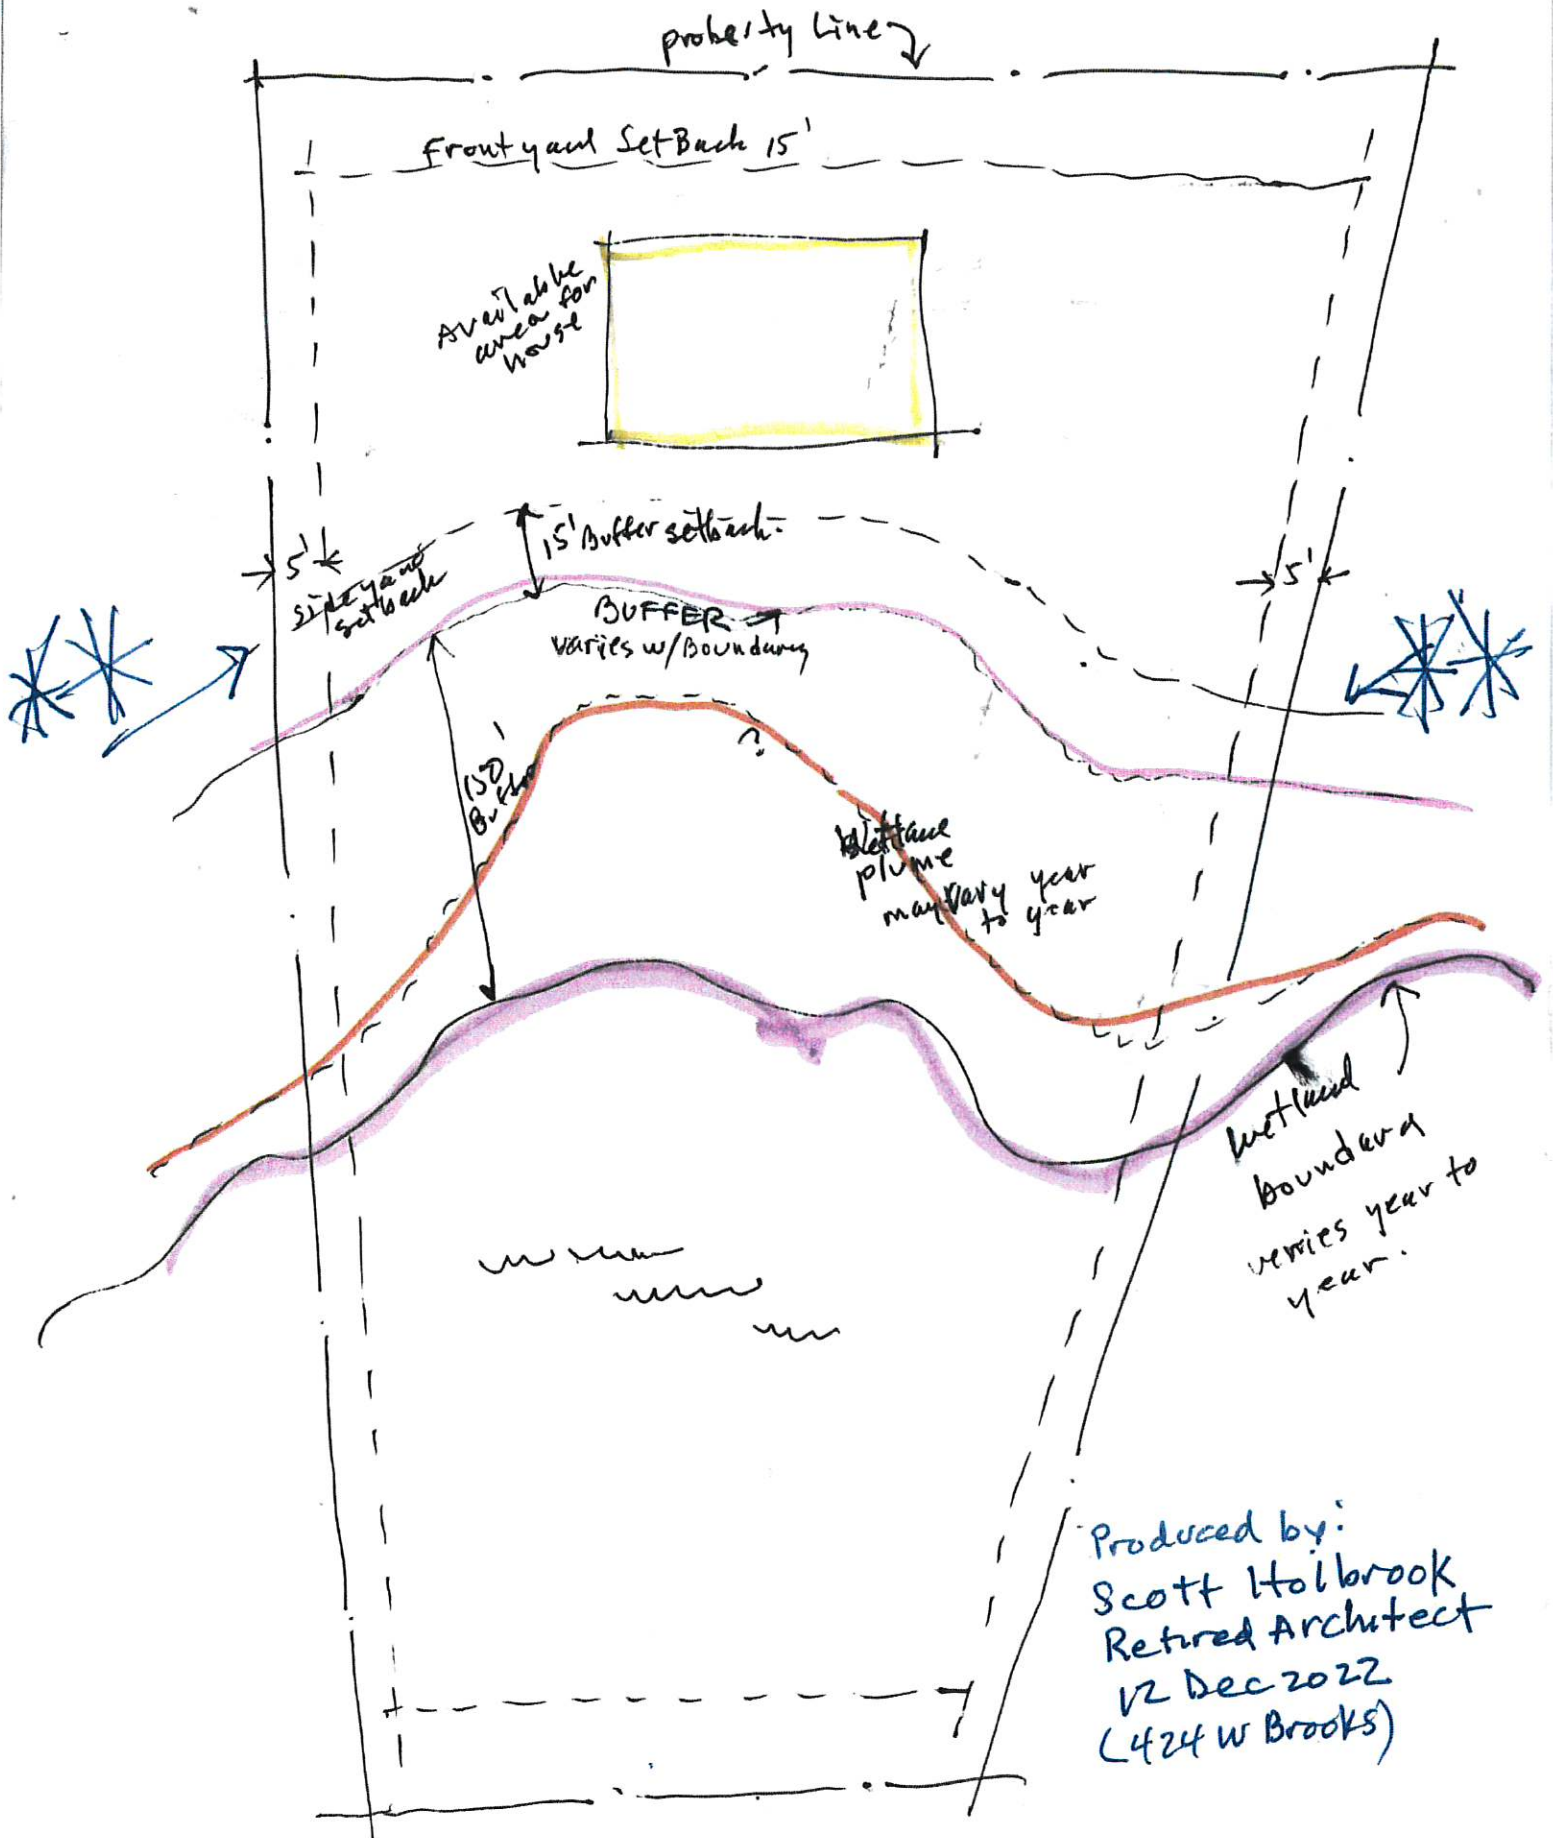 property Line
Frontyard SetBack 15'
Available
area for
house
15' Buffer setback.
5'
sideyard
setback
5'
BUFFER
varies w/Boundary
150'
Buffer
?
plume
may vary year
to year
wetland
boundary
verries year to
year.
Produced by:
Scott Holbrook
Retired Architect
12 Dec 2022
(424 W Brooks)